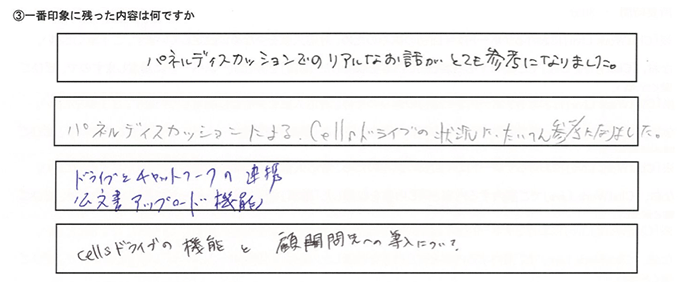 ③一番印象に残った内容は何ですか
パネルディスカッションでのリアルなお話がとても参考になりました。
パネルディスカッションによる、Cellsドライブの状況に、たいへん参考になりました。
ドライブとチャットワークの連携
公文書アップロード機能
cellsドライブの機能と顧問先への導入について